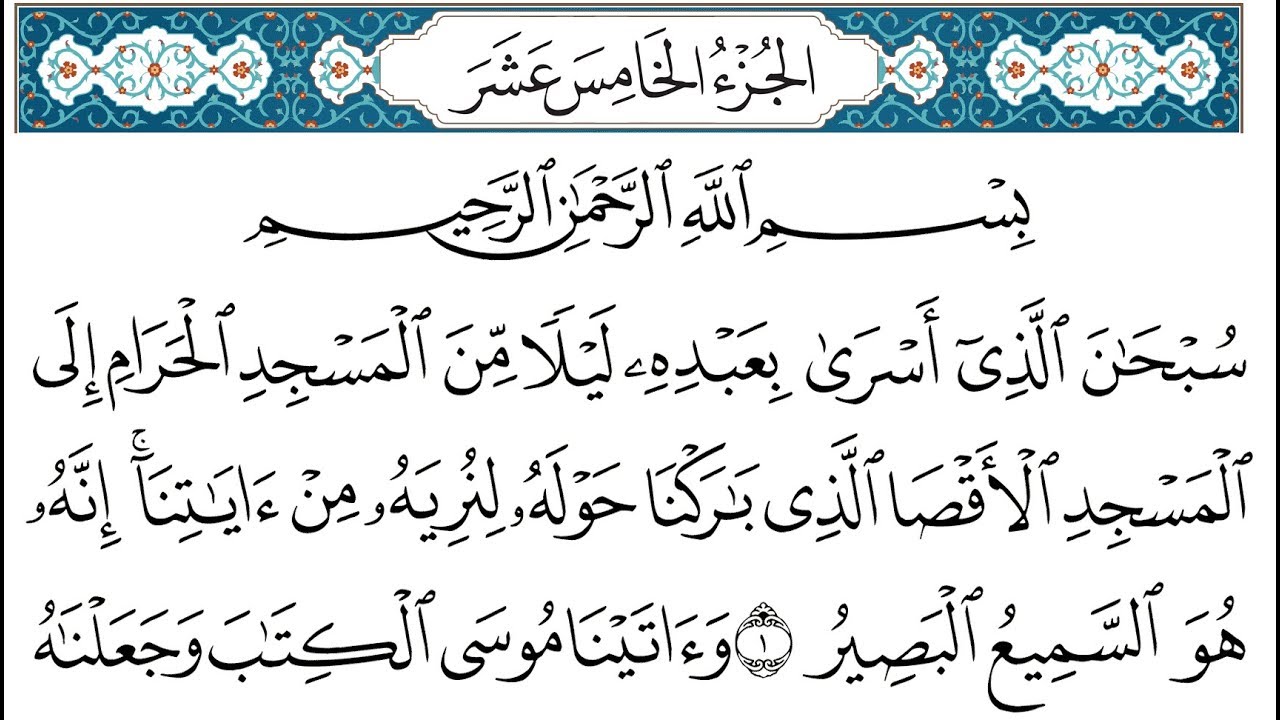 الجُزْءُ الخَامِسَ عَشَرَ
بِسْمِ ٱللَّهِ ٱلرَّحْمَٰنِ ٱلرَّحِيمِ
سُبْحَٰنَ ٱلَّذِىٓ أَسْرَىٰ بِعَبْدِهِۦ لَيْلًا مِّنَ ٱلْمَسْجِدِ ٱلْحَرَامِ إِلَى
ٱلْمَسْجِدِ ٱلْأَقْصَا ٱلَّذِى بَٰرَكْنَا حَوْلَهُۥ لِنُرِيَهُۥ مِنْ ءَايَٰتِنَآ ۚ إِنَّهُۥ
هُوَ ٱلسَّمِيعُ ٱلْبَصِيرُ ١ وَءَاتَيْنَا مُوسَى ٱلْكِتَٰبَ وَجَعَلْنَٰهُ